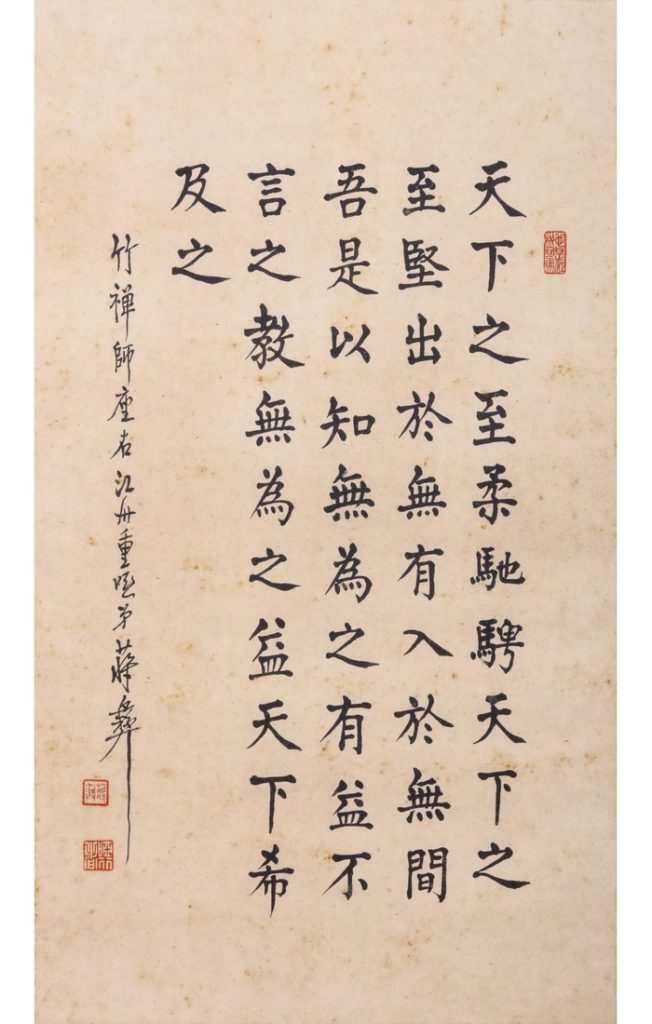 天下之至柔馳騁天下之
至堅出於無有入於無間
吾是以知無為之有益不
言之教無為之益天下希
及之
竹禅師座右江州重啞弟蔣彝